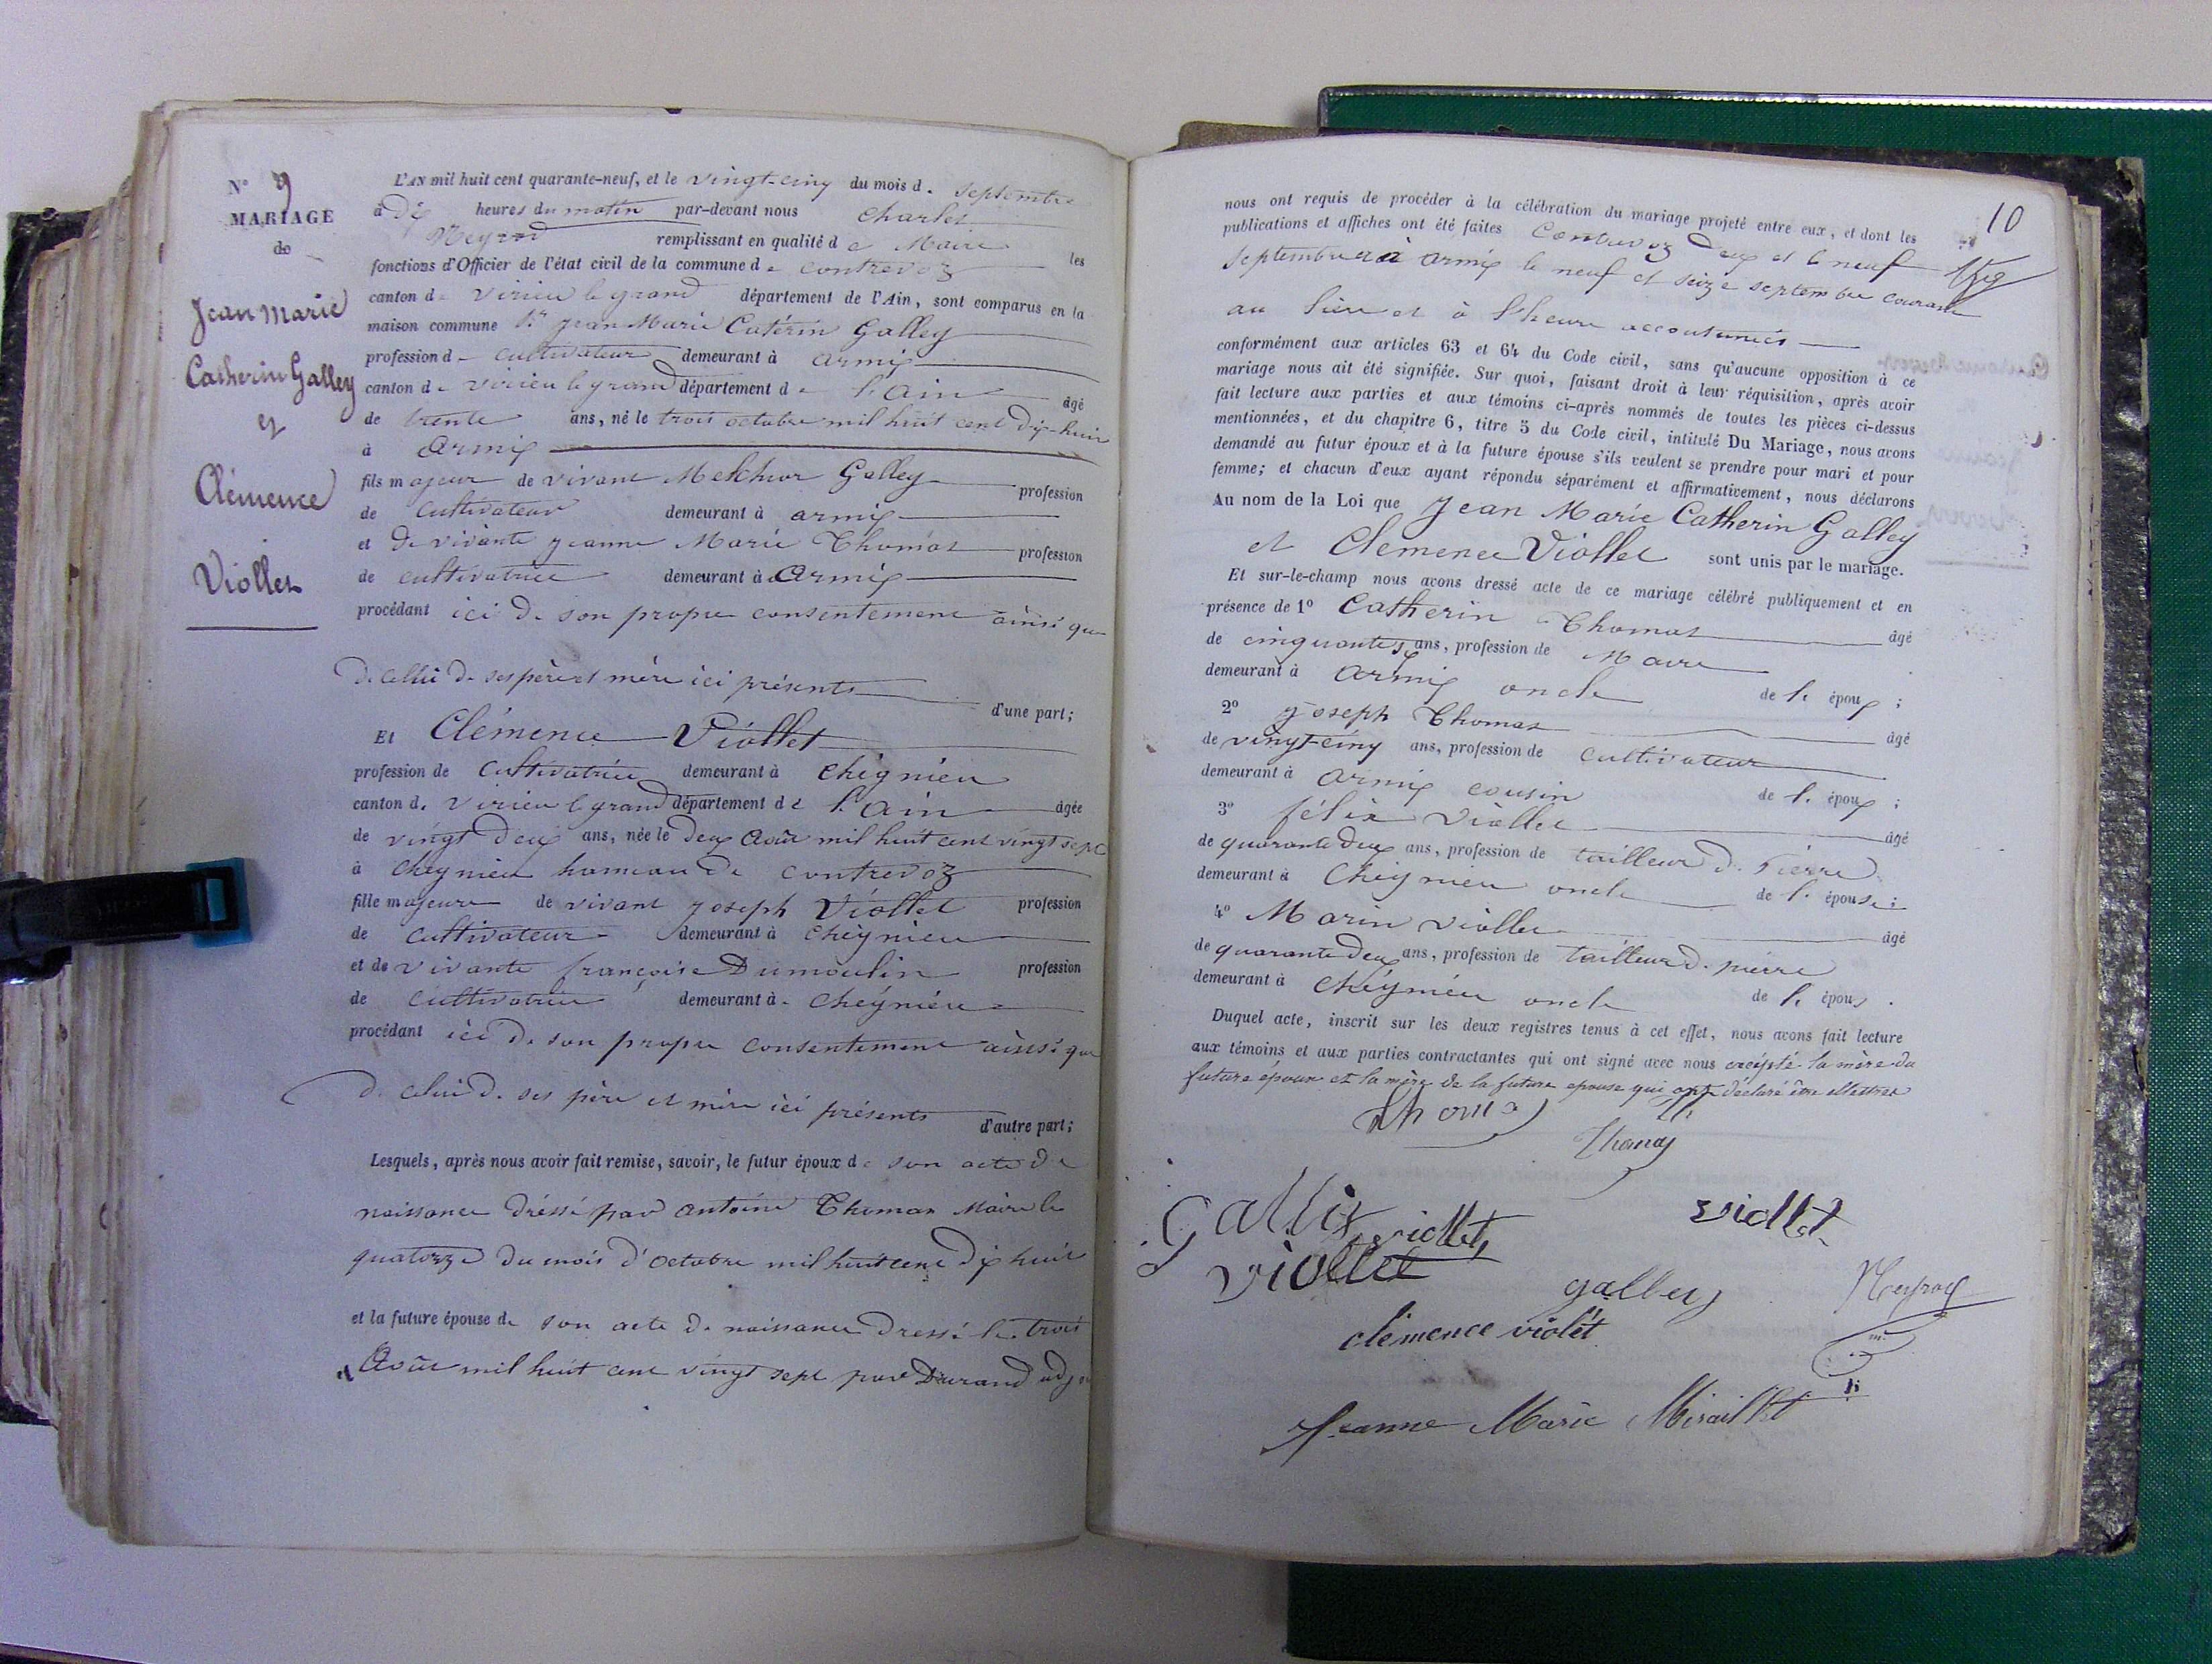 N° 9
MARIAGE
de
Jean Marie
Catherin Galley
et
Clémence
Viollet
L'AN mil huit cent quarante-neuf, et le vingt-cinq du mois d. septembre
à dix heures du matin par-devant nous Charles
Neyrod remplissant en qualité de Maire les
fonctions d'Officier de l'état civil de la commune de contrevoz
canton de virieu le grand département de l'Ain, sont comparus en la
maison commune Sr jean Marie Catérin Galley
profession de cultivateur demeurant à armix
canton de virieu le grand département de l'Ain âgé
de trente ans, né le trois octobre mil huit cent dix-huit
à armix
fils majeur de vivant Melchior Galley profession
de cultivateur demeurant à armix
et de vivante jeanne Marie Thomas profession
de cultivatrice demeurant à Armix
procédant ici de son propre consentement ainsi que
de cellui de ses père et mère ici présents
d'une part;
Et Clémence Viollet
profession de cultivatrice demeurant à cheignieu
canton de virieu le grand département de l'Ain âgée
de vingt deux ans, née le deux Août mil huit cent vingt sept
à cheignieu hameau de contrevoz
fille majeure de vivant joseph Viollet profession
de cultivateur demeurant à cheignieu
et de vivante françoise Dumoulin profession
de cultivatrice demeurant à cheignieu
procédant ici de son propre consentement ainsi que
de celui de ses père et mère ici présents
d'autre part;
Lesquels, après nous avoir fait remise, savoir, le futur époux de son acte de
naissance dréssé par antoine Thomas Maire le
quatorze du mois d'octobre mil huit cent dix huit
et la future épouse de son acte de naissance dressé le trois
Août mil huit cent vingt sept par Durand adj
10
nous ont requis de procéder à la célébration du mariage projeté entre eux, et dont les
publications et affiches ont été faites Contrevoz deux et le neuf
septembre et à armix le neuf et seize septembre courant
au lieu et à l'heure accoutumés
conformément aux articles 63 et 64 du Code civil, sans qu'aucune opposition à ce
mariage nous ait été signifiée. Sur quoi, faisant droit à leur réquisition, après avoir
fait lecture aux parties et aux témoins ci-après nommés de toutes les pièces ci-dessus
mentionnées, et du chapitre 6, titre 5 du Code civil, intitulé Du Mariage, nous avons
demandé au futur époux et à la future épouse s'ils veulent se prendre pour mari et pour
femme; et chacun d'eux ayant répondu séparément et affirmativement, nous déclarons
Au nom de la Loi que Jean Marie Catherin Galley
et Clemence Viollet sont unis par le mariage.
Et sur-le-champ nous avons dressé acte de ce mariage célébré publiquement et en
présence de 1° Catherin Thomas âgé
de cinquante ans, profession de Maire
demeurant à armix oncle de l. époux;
2° joseph Thomas âgé
de vingt-cinq ans, profession de cultivateur
demeurant à armix cousin de l. époux;
3° félix Viollet âgé
de quarante deux ans, profession de tailleur de Pierre
demeurant à cheignieu oncle de l. épouse;
4° Marin viollet âgé
de quarante deux ans, profession de tailleur d. pierre
demeurant à cheignieu oncle de l. épous.
Duquel acte, inscrit sur les deux registres tenus à cet effet, nous avons fait lecture
aux témoins et aux parties contractantes qui ont signé avec nous excépté la mère du
future époux et la mère de la future epouse qui ont déclaré être illettres
Thomas
Thomas
viollet
Gallix viollet
viollet
galley
Neyrod
clémence violét
Jeanne Marie Miraillet